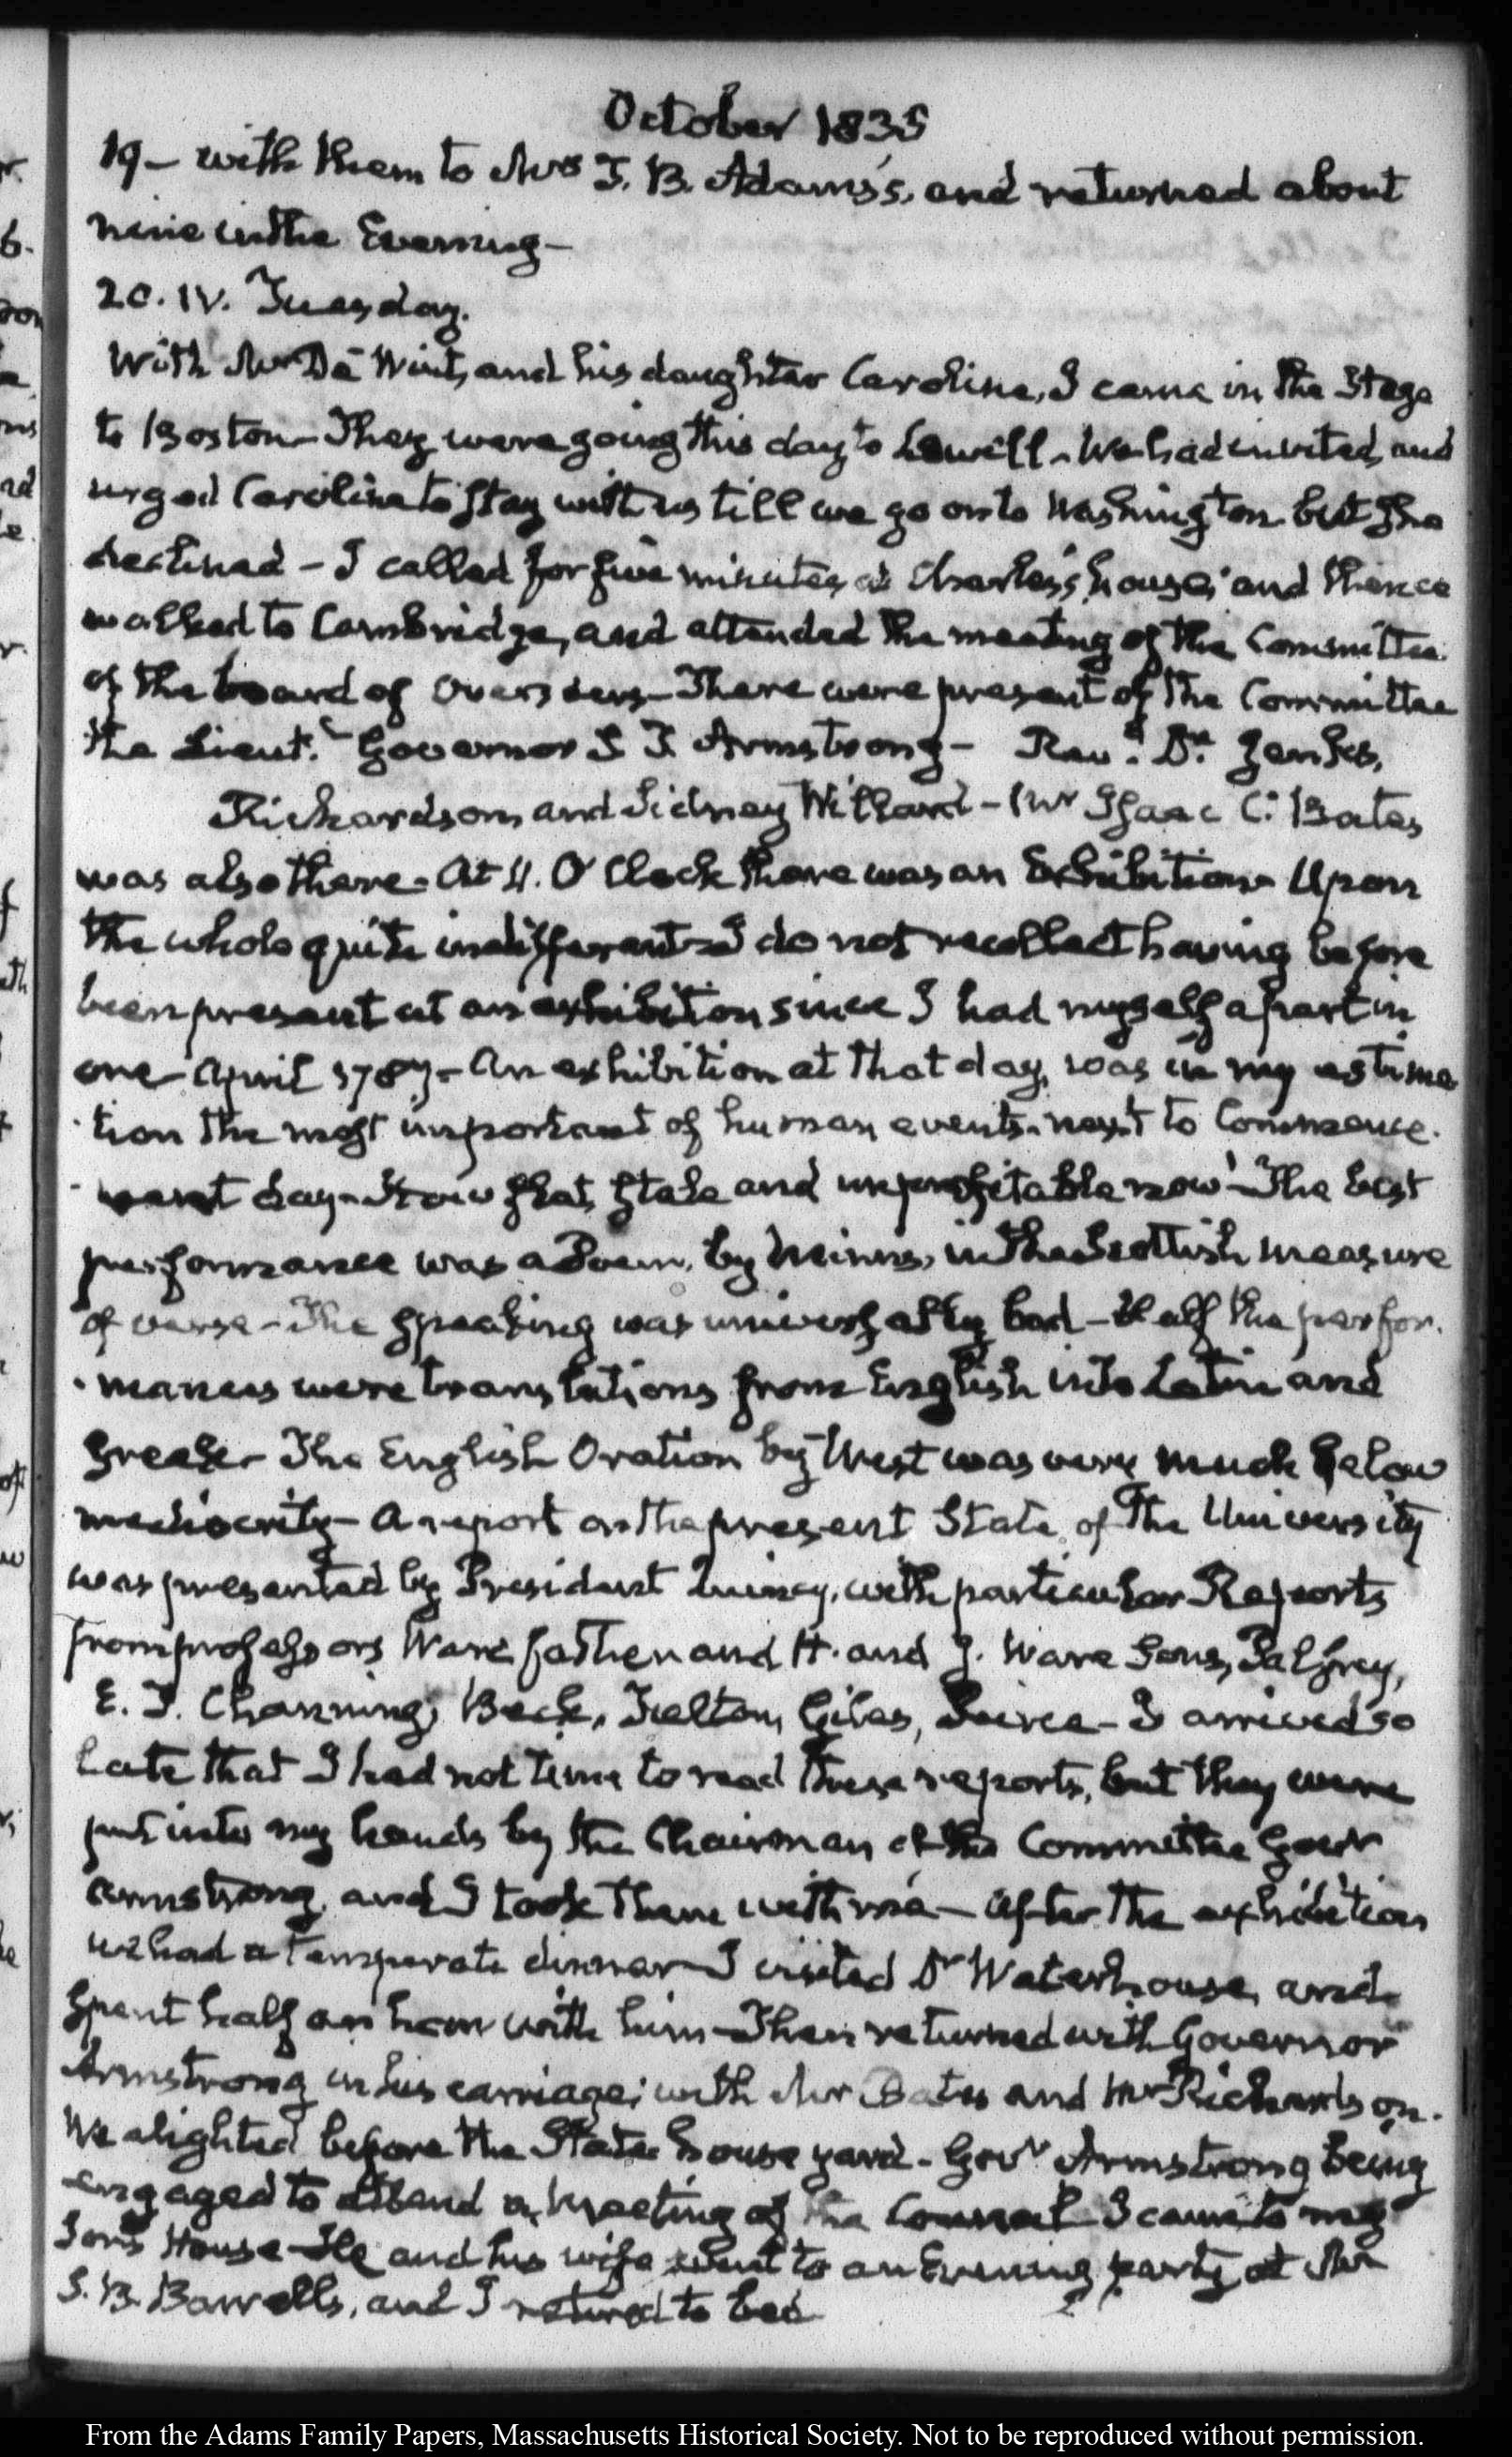 October 1835
19 - with them to Mrs T. B. Adams's, and returned about
nine in the Evening -
20. IV. Tuesday.
With Mr De Wint, and his daughter Caroline, I came in the Stage
to Boston - They were going this day to Lowell - We had invited, and
urged Caroline to stay with us till we go on to Washington but she
declined - I called for five minutes at Charles's house, and thence
walked to Cambridge, and attended the meeting of the Committee
of the board of Overseers - There were present of the Committee
the Lieut.t Governor S T Armstrong - Revd. Dr. Jenks,
Richardson, and Sidney Willard - Mr Isaac C. Bates
was also there - At 4. O'Clock there was an Exhibition - Upon
the whole quite indifferent - I do not recollect having before
been present at an exhibition since I had myself a part in
one - April 1787 - An exhibition at that day, was in my estima
tion the most important of human events - next to Commence-
-ment day - How flat, stale and unprofitable now - The best
performance was a Poem, by Minns, in the Scottish measure
of verse - The speaking was universally bad - Half the perfor-
-mances were translations from English into Latin and
Greek - The English Oration by West was very much below
mediocrity - A report on the present State of the University
was presented by President Quincy, with particular Reports
from professors Ware father and H. and J. Ware Sons, Palfrey,
E. T. Channing, Beck, Felton, Giles, Peirce - I arrived so
late that I had not time to read these reports, but they were
put into my hands by the Chairman of the Committee Govr
Armstrong, and I took them with me - After the exhibition
we had a temperate dinner - I visited Dr Waterhouse, and
spent half an hour with him - Then returned with Governor
Armstrong in his carriage; with Mr Bates and Mr Richardson.
We alighted before the State house yard - Govr Armstrong being
engaged to attend a meeting of the Council I came to my
Son's House - He and his wife went to an Evening party at Mr
S. B. Barrell's, and I retired to bed
From the Adams Family Papers, Massachusetts Historical Society. Not to be reproduced without permission.